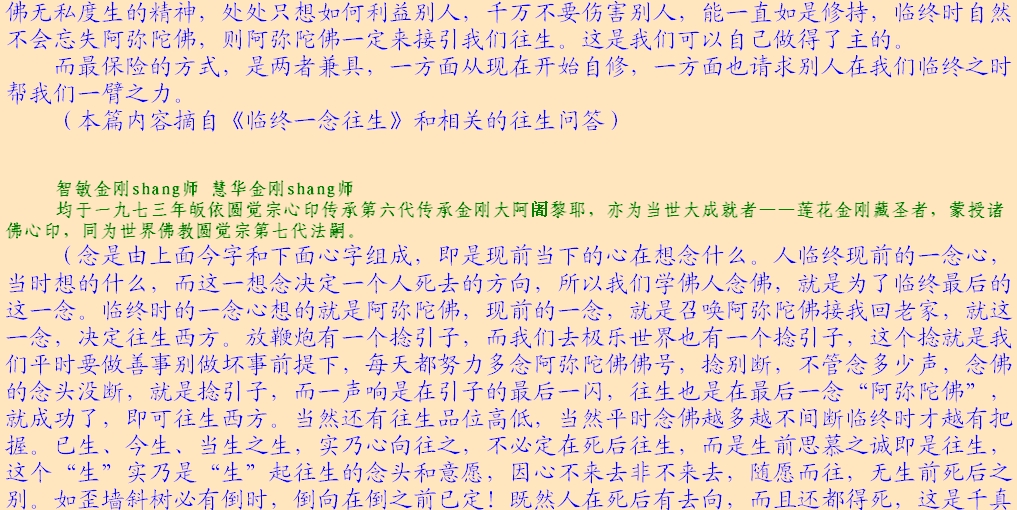 佛无私度生的精神，处处只想如何利益别人，千万不要伤害别人，能一直如是修持，临终时自然
不会忘失阿弥陀佛，则阿弥陀佛一定来接引我们往生。这是我们可以自己做得了主的。
而最保险的方式，是两者兼具，一方面从现在开始自修，一方面也请求别人在我们临终之时
帮我们一臂之力。
（本篇内容摘自《临终一念往生》和相关的往生问答）
智敏金刚shang师 慧华金刚shang师
均于一九七三年皈依圆觉宗心印传承第六代传承金刚大阿闍黎耶，亦为当世大成就者——莲花金刚藏圣者，蒙授诸
佛心印，同为世界佛教圆觉宗第七代法嗣。
（念是由上面今字和下面心字组成，即是现前当下的心在想念什么。人临终现前的一念心，
当时想的什么，而这一想念决定一个人死去的方向，所以我们学佛人念佛，就是为了临终最后的
这一念。临终时的一念心想的就是阿弥陀佛，现前的一念，就是召唤阿弥陀佛接我回老家，就这
一念，决定往生西方。放鞭炮有一个捻引子，而我们去极乐世界也有一个捻引子，这个捻就是我
们平时要做善事别做坏事前提下，每天都努力多念阿弥陀佛佛号，捻别断，不管念多少声，念佛
的念头没断，就是捻引子，而一声响是在引子的最后一闪，往生也是在最后一念“阿弥陀佛”，
就成功了，即可往生西方。当然还有往生品位高低，当然平时念佛越多越不间断临终时才越有把
握。已生、今生、当生之生，实乃心向往之，不必定在死后往生，而是生前思慕之诚即是往生，
这个“生”实乃是“生”起往生的念头和意愿，因心不来去非不来去，随愿而往，无生前死后之
别。如歪墙斜树必有倒时，倒向在倒之前已定！既然人在死后有去向，而且还都得死，这是千真